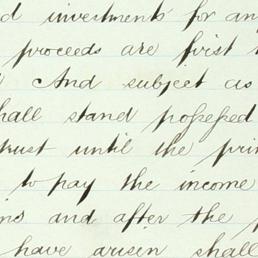 d investments for an
proceeds are first
And subject as
hall stand possessed
trust until the prin
to pay the income
ns and after the
have arisen shall